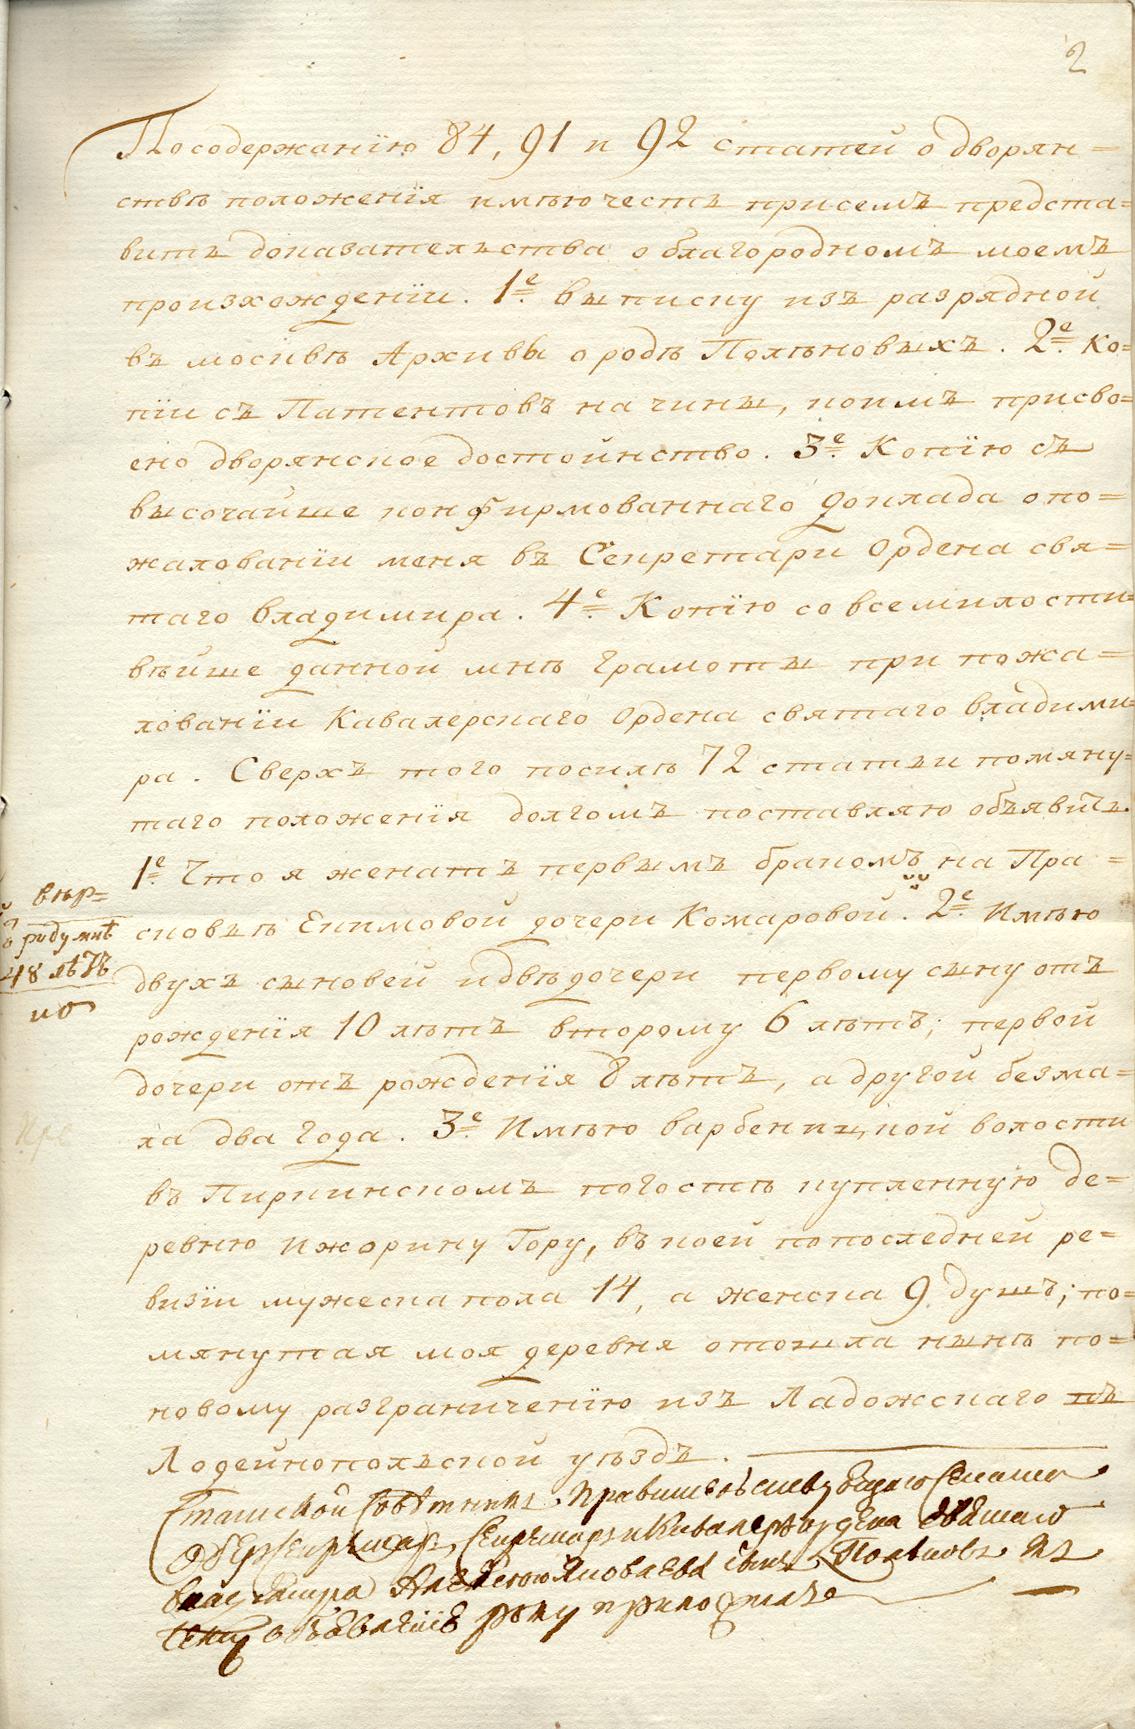 2
Посодержанїю 84, 91 и 92 статей о дворян=
ствѣ положенїя имѣю честь присемъ предста=
вить доказательства о благородномъ моемъ
произхожденїи. 1е. выписку изъ разрядной
въ москвѣ Архивы о родѣ Полѣновыхъ. 2е. Ко=
пїи съ Патентовъ на чины, коимъ присво=
ено дворянское достоинство. 3е. Копїю съ
высочайше конфирмованнаго доклада опо=
жалованїи меня въ Секретари Ордена свя=
таго владимира. 4е. Копїю со всемилости=
вѣйше данной мнѣ грамоты при пожа=
лованїи Кавалерскаго Ордена святаго владими=
ра. Сверхъ того посилѣ 72 статьи помяну=
таго положенїя долгомъ поставляю объявить.
1е. Что я женатъ первымъ бракомъ на Пра=
сковьѣ Екимовой дочери Комаровой. 2е. Имѣю
двухъ сыновей идвѣ дочери первому сыну отъ
рожденїя 10 лѣтъ второму 6 лѣтъ; первой
дочери отъ рожденїя 8 лѣтъ, а другой безма=
ла два года. 3е. Имѣю варбеницкой волости
въ Пиркинскомъ погостѣ купленную де=
ревню Ижорину Гору, въ коей попоследней ре=
визїи мужеска пола 14, а женска 9 душъ; по=
мянутая моя деревня отошла нынѣ по=
новому разграниченїю изъ Ладожскаго въ
Лодейнопольской уѣздъ.
вѣр=
роду мнѣ
48 лѣтъ
но
Статской Совѣтникъ, Правительствующаго Сената
Оберъ Секретарь, Секретарь и Кавалеръ ордена святаго
владимира Алексѣй Яковлевъ сынъ Полѣновъ къ
сему объявленїю руку приложилъ